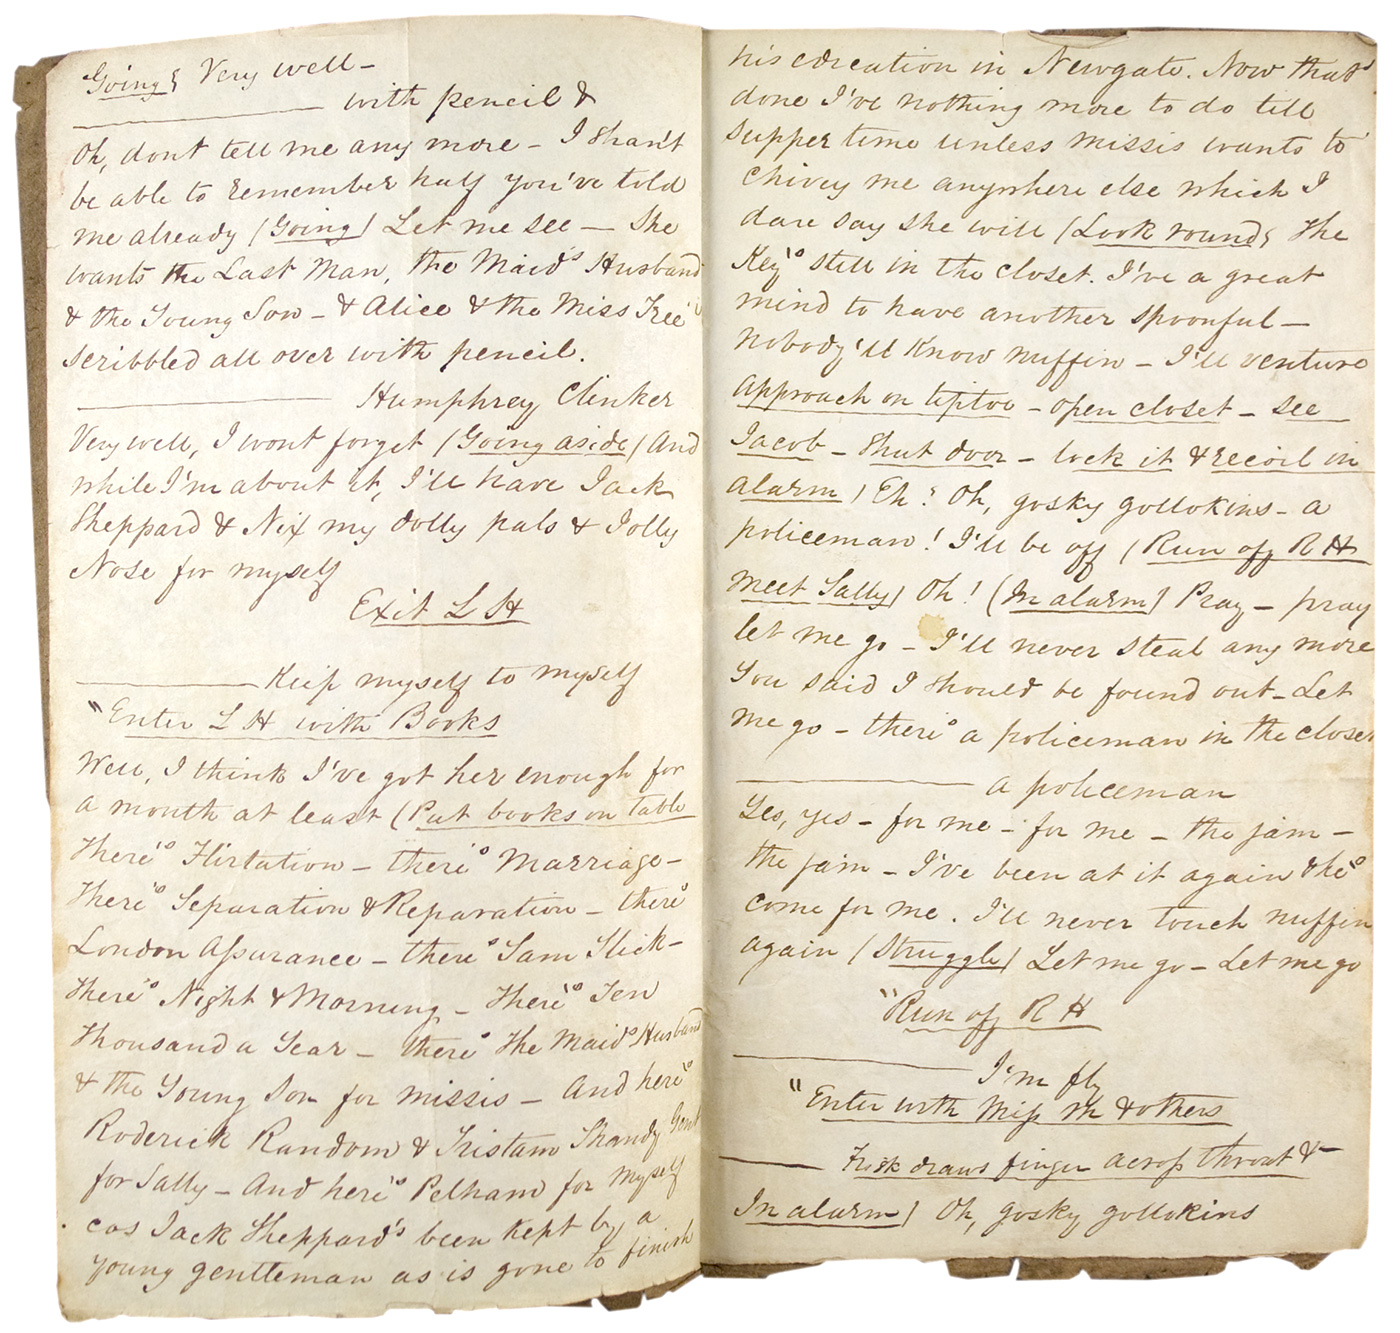 Going) Very well –
———— with pencil &
Oh, dont tell me any more – I shan't
be able to remember half you've told
me already (Going) Let me see — She
wants the Last Man, the Maid's Husband
& the Young Son – & Alice & the Miss Tree
scribbled all over with pencil.
———— Humphrey Clinker
Very well, I wont forget (Going aside) And
while I'm about it, I'll have Jack
Sheppard & Nix my dolly pals & Jolly
Nose for myself
Exit L H
———— Keep myself to myself
"Enter L H with Books
Well, I think I've got her enough for
a month at least (Put books on table
There's Flirtation – there's Marriage –
There's Separation & Reparation – there's
London Assurance – there's Sam Slick –
There's Night & Morning – There's Ten
Thousand a Year – there's the Maid's Husband
& the Young Son for missis – And here's
Roderick Random & Tristam Shandy Gent
for Sally – And here's Pelham for myself
cos Jack Sheppard's been kept by a
young gentleman as is gone to finish
his edication in Newgate. Now that's
done I've nothing more to do till
supper time unless missis wants to
chivey me anywhere else which I
dare say she will (Look round) The
Key's still in the closet. I've a great
mind to have another spoonful –
nobody'll know nuffin – I'll venture
approach on tiptoe – open closet – see
Jacob – Shut door – lock it & recoil in
alarm) Eh? Oh, gosky gollokins – a
policeman! I'll be off (Run off R H
meet Sally) Oh! (In alarm) Pray – pray
let me go – I'll never steal any more
You said I should be found out – Let
me go – there's a policeman in the closet
———— a policeman
Yes, yes – for me – for me – the jam –
the jam – I've been at it again & he's
come for me. I'll never touch nuffin
again (Struggle) Let me go – Let me go
"Run off R H
———— I'm fly
"Enter with Miss M & others
———— Frisk draws finger across throat & –
In alarm) Oh, gosky gollokins